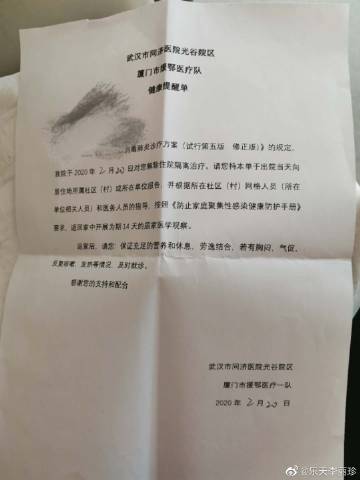 武汉市同济医院光谷院区
厦门市援鄂医疗队
健康提醒单
肺炎诊疗方案（试行第五版 修正版）》的规定，
我院于 2020 年 2 月 20 日对您解除住院隔离治疗。请您持本单于出院当天向
居住地所属社区（村）或所在单位报告，并根据所在社区（村）网格人员（所在
单位相关人员）和医务人员的指导，按照《防止家庭聚集性感染健康防护手册》
要求，返回家中开展为期 14 天的居家医学观察。
返家后，请您：保证充足的营养和休息，劳逸结合，若有胸闷、气促、
反复咳嗽、发热等情况，及时就诊。
感谢您的支持和配合
武汉市同济医院光谷院区
厦门市援鄂医疗一队
2020 年 2 月 20 日
@乐天李丽珍